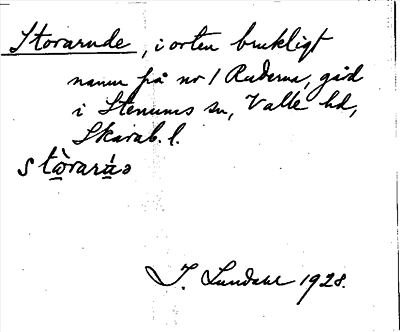 Storarude, i orten brukligt
namn på nr 1 Ruderna, gård
i Stenums sn, Valle hd,
Skarab. l.
stòraráə
I. Lundahl 1928.